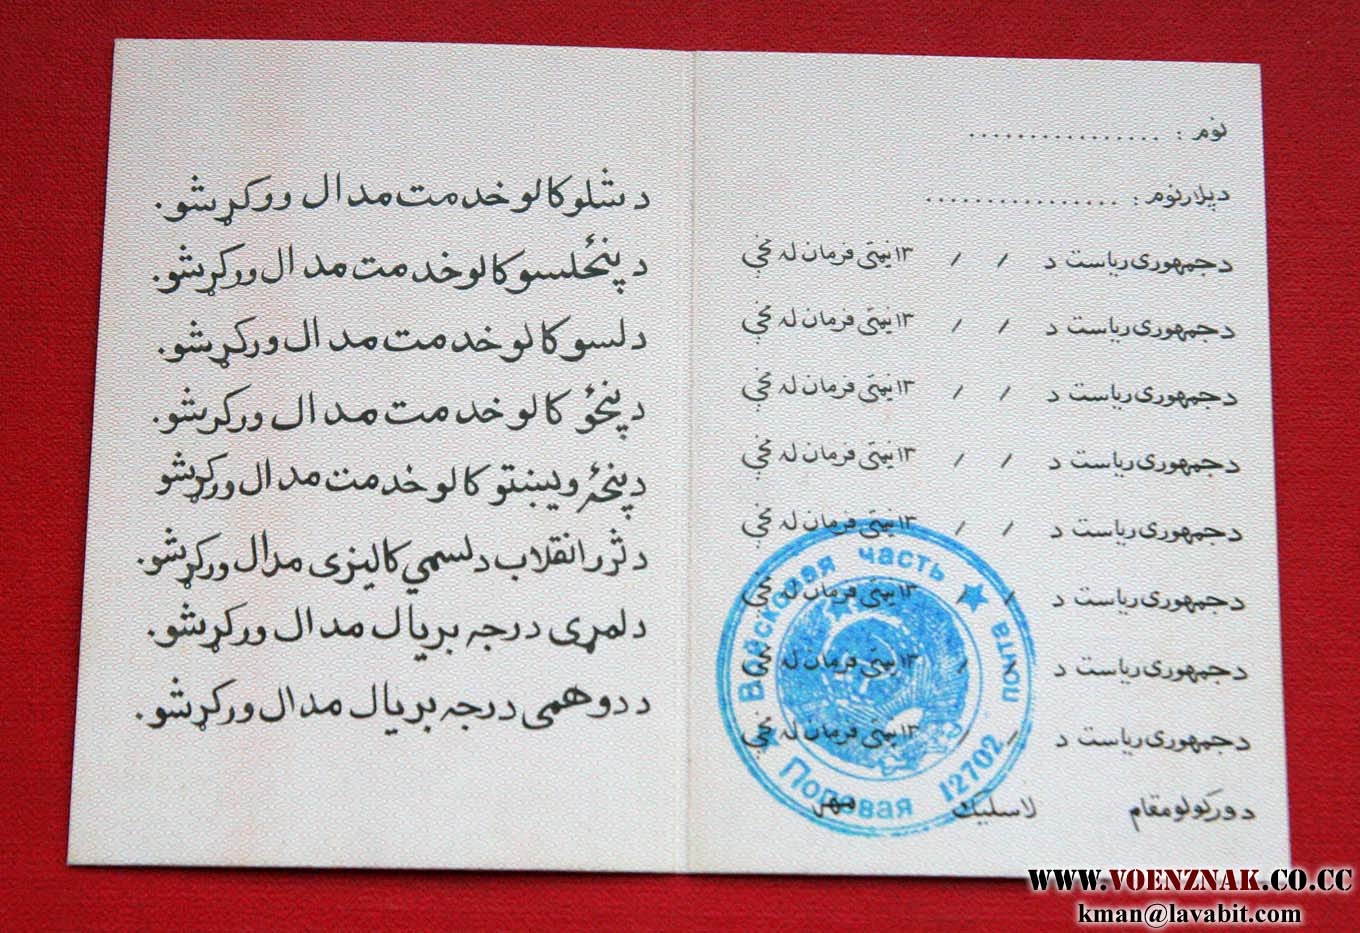 نوم : ................
د پلار نوم : ................
د جمهوری ریاست د / / ۱۳ نیټې فرمان له مخې
د جمهوری ریاست د / / ۱۳ نیټې فرمان له مخې
د جمهوری ریاست د / / ۱۳ نیټې فرمان له مخې
د جمهوری ریاست د / / ۱۳ نیټې فرمان له مخې
د جمهوری ریاست د / / ۱۳ نیټې فرمان له مخې
د جمهوری ریاست د / / ۱۳ نیټې فرمان له مخې
د جمهوری ریاست د / / ۱۳ نیټې فرمان له مخې
د جمهوری ریاست د / / ۱۳ نیټې فرمان له مخې
د ورکولو مقام لاسلیک مهر
Войсковая часть
Полевая почта
12702
د شلو کالو خدمت مدال ورکړ شو.
د پنځلسو کالو خدمت مدال ورکړ شو.
د لسو کالو خدمت مدال ورکړ شو.
د پنځو کالو خدمت مدال ورکړ شو.
د پنځه ویښتو کالو خدمت مدال ورکړ شو
د ثور انقلاب د لسمې کالیزی مدال ورکړ شو.
د لمړی درجه بریال مدال ورکړ شو.
د دوهمی درجه بریال مدال ورکړ شو.
WWW.VOENZNAK.CO.CC
kman@lavabit.com